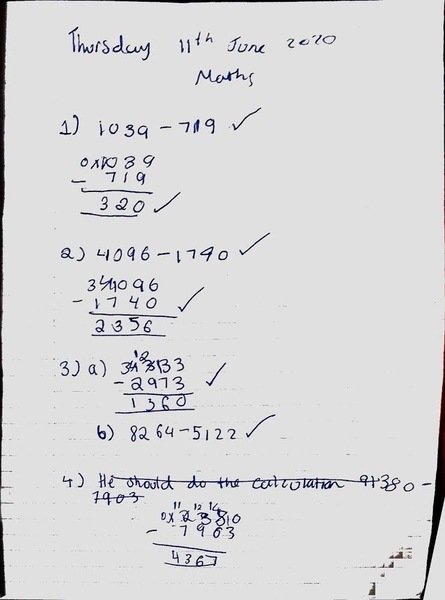 Thursday 11th June 2020
Maths
1) 1039 - 719 ✓
1039
- 719
320 ✓
2) 4096 - 1740 ✓
4096
- 1740 ✓
2356
3) a) 4333
- 2973 ✓
1360
b) 8264 - 5122 ✓
4) He should do the calculation -
7903
- 7903
4367